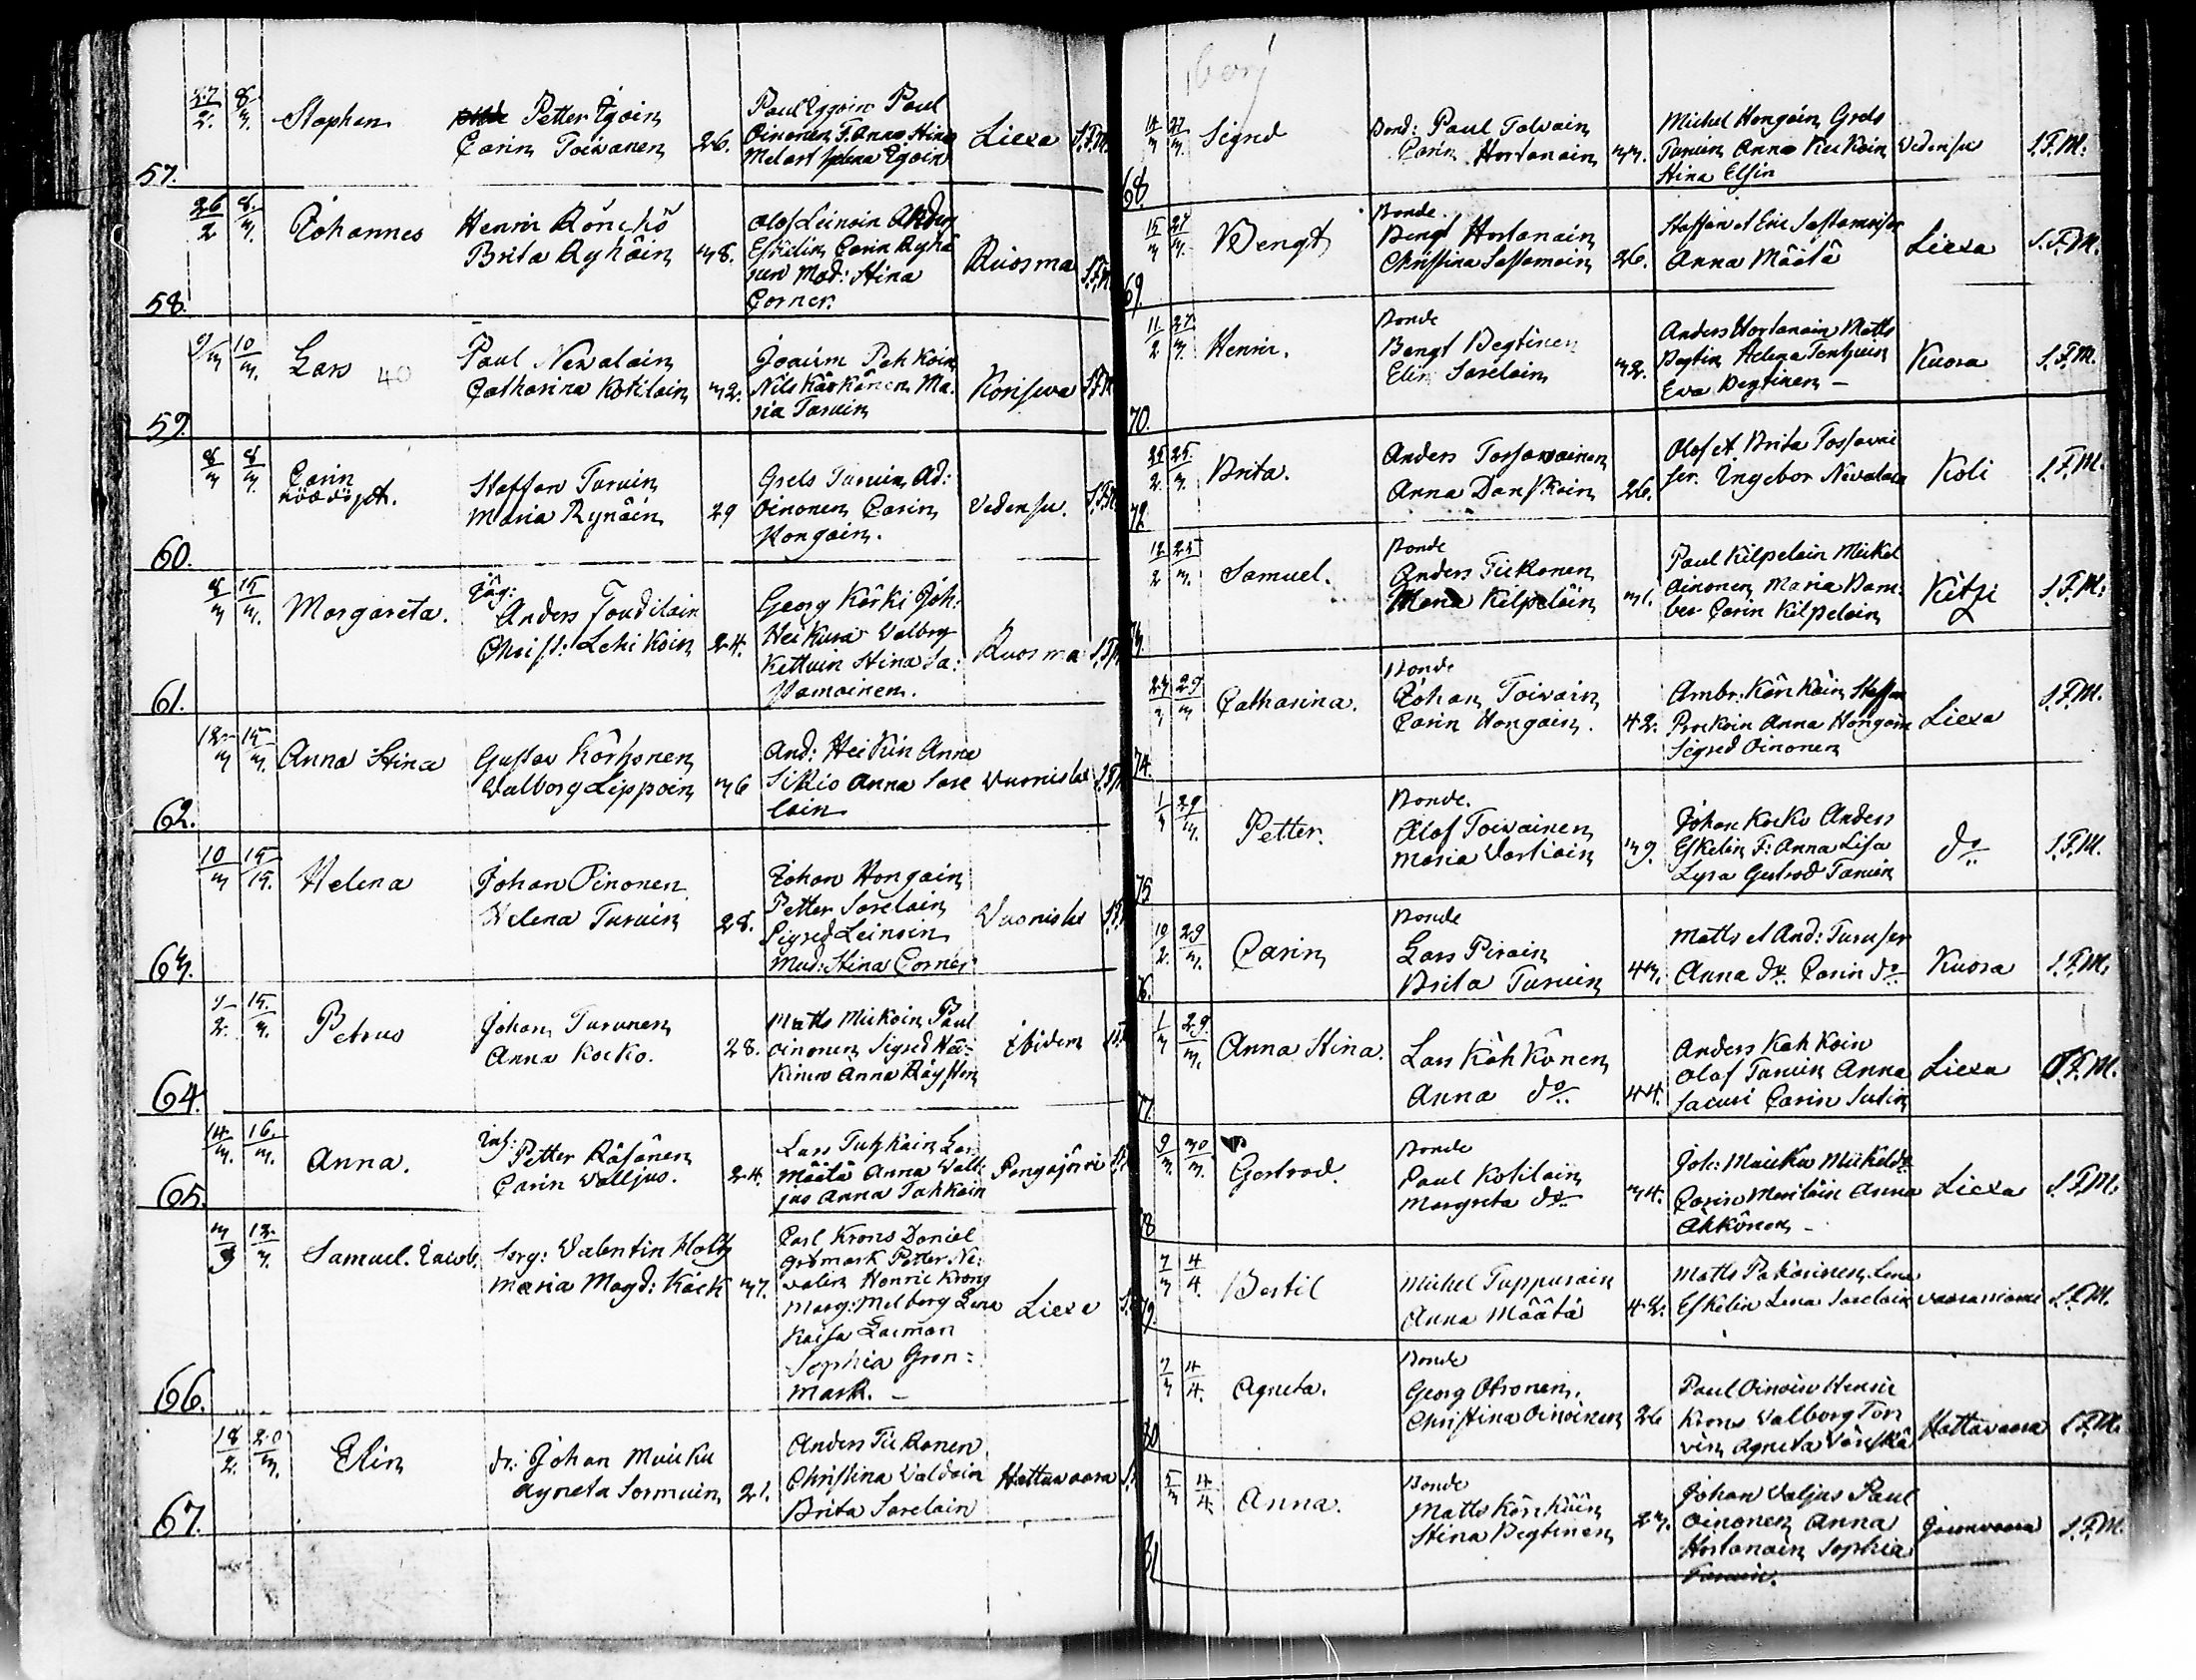 27/2 8/3 Staphan Petter Egoin Carin Toivanen 26. Paul Eggoin Paul
Oinonen F. Anna Stina
Melart Helena Egoin Liexa S.F.M.
57.
26/2 8/3 Johannes Henric Rönckö
Brita Ryhäin 38. Olof Leinoin Anders
Eskelin Carin Ryhä
nen Mad: Stina
Corner. Ruosma S.F.M.
58.
10/3 Lars 40 Paul Nevalain
Catharina Kotilain 32. Joakim Pahkoin
Nils Kärkänen Ma-
ria Turuin S.F.M.
59.
8/3 8/3 Carin
nöddöpt. Staffan Turuin
Maria Rynäin 29 Grels Turuin Ad:
Oinonen Carin
Hongain. Vedensu. S.F.M.
60.
8/3 15/3 Margareta. Anders
Christ: Lehikoin 24. Georg Kärki Joh:
Heikura Valborg
Kettuin Stina Sa:
stamoinen. Ruosma S.F.M.
61.
12/3 15/3 Anna Stina Gustav
Valborg Lippoin 36 And: Heikin Anna
Sikio Anna Sare
lain Vuonislax S.F.M.
62.
10/3 15/15. Helena Johan Oinonen
Helena Turuin 28. Johan Hongain
Petter Sarelain
Sigred Leinoin
Mad: Stina Corner Vuonislax S.F.M.
63.
15/3. Petrus Johan Turunen
Anna Kocko. 28. Matts Mickoin Paul
Oinonen Sigred Hei-
kinen Anna Ibidem S.F.M.
64.
14/3. 16./3. Anna. Inh: Petter Räsänen
Carin Valljus. 24. Lars
Määttä Anna Vall-
jus Anna Tahkoin Pangajärvi
65.
12/3. Samuel. Jacob. Serg: Valentin Holtz
Maria Magd: Käck 37. Carl Krons Daniel
Petter Ne-
valin Henric Krons
Marg: Melberg Lena
Kaisa Lacman
Sophia Gron=
mark. — Liexa
66.
18/2. 20/3. Elin dr: Johan Muicku
Agneta Sormuin 21. Anders Tickanen
Christina Valdoin
Brita Sarelain Hattuvaara
67.
14/3 22/3. Sigred Bond: Paul Tolvain
Carin Hortanain 33. Michel Hongain Grels
Turuin Anna Kuckoin
Stina Elfin Vedensu S.F.M.
68.
15/3 27/3. Bengt Bonde.
Bengt Hortanain
Christina Sastamoin 26. Staffan et Eric Sastamoiser
Anna Määtä Liexa S.F.M.
69.
11/2 27/3. Henric. Bonde
Bengt Degtinen
Elin Sarelain 32. Anders Hortanain Matts
Degtin Helena
Eva Degtinen — Kuora S.F.M.
70.
25/2. 25./3. Brita. Anders Tossavainen
Anna Danskain 26. Olof et Brita Tossavai
ser. Ingebor Nevalain Koli S.F.M.
72.
12/2 25/3. Samuel. Bonde
Anders Tickanen
Maria Kilpeläin 31. Paul Kilpelain Mickel
Oinonen Maria
Carin Kilpelain S.F.M.
73.
23/3 29/3 Catharina. Bonde
Johan Toivain
Carin Hongain. 42. Ambr: Kärkäin Staffan
Anna Hongain
Sigred Oinonen Liexa S.F.M.
74.
1/3 29/3. Petter. Bonde.
Olof Toivainen
Maria Vartiain 39. Johan Kocko Anders
Eskelin F: Anna Lisa
Lyra Gertrod Turuin do S.F.M.
75
19/2. 29/3. Carin Bonde
Lars Pirain
Brita Turuin 43. Matts et And: Turuiser
Anna do Carin do Kuora S.F.M.
76.
1/3 29./3. Anna Stina. Lars Kähkönen
Anna do 44. Anders Kahkoin
Olof Turuin Anna
Carin Sutin Liexa S.F.M.
77.
9/3. 30/3. Gertrod. Bonde
Paul Kotilain
Margreta do 34. Joh: Muicku Mickel do
Carin Moilain Anna
Ahkönen — Liexa S.F.M.
78
7/3 4/4. Bertil Michel Tuppurain
Anna Määtä 42. Matts Pakarinen Lena
Eskelin Lena Sarelain S.F.M.
79.
7/3 4/4. Agneta. Bonde
Georg Otronen.
Christina Oinoinen 26 Paul Oinoin Henric
Krons Valborg Tor
vin Agneta Hattuvaara S.F.M.
80
5/3 4/4. Anna. Bonde
Matts Kärckäin
Stina Degtinen 23. Johan Valjus Paul
Oinonen Anna
Hortanain Sophia
Turuin. S.F.M.
81